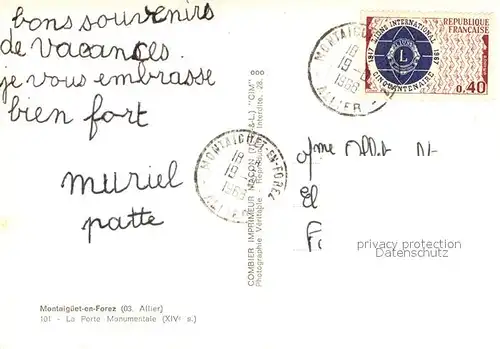 bons souvenirs
de vacances
je vous embrasse
bien fort
muriel
patte
Montaigüet-en-Forez (03. Allier)
101 - La Porte Monumentale (XIVe s.)
COMBIER IMPRIMEUR MACON (S.-&-L.) "CIM"
Photographie Véritable - Reproduction Interdite. 28.
MONTAIGUET-EN-FOREZ
18 H
19 -
1968
ALLIER
MONTAIGUET-EN-FOREZ
18
19 -
1968
ALLIER
RÉPUBLIQUE
FRANÇAISE
LIONS INTERNATIONAL
1917 1967
LIONS
L
CINQUANTENAIRE
0,40
privacy protection
Datenschutz